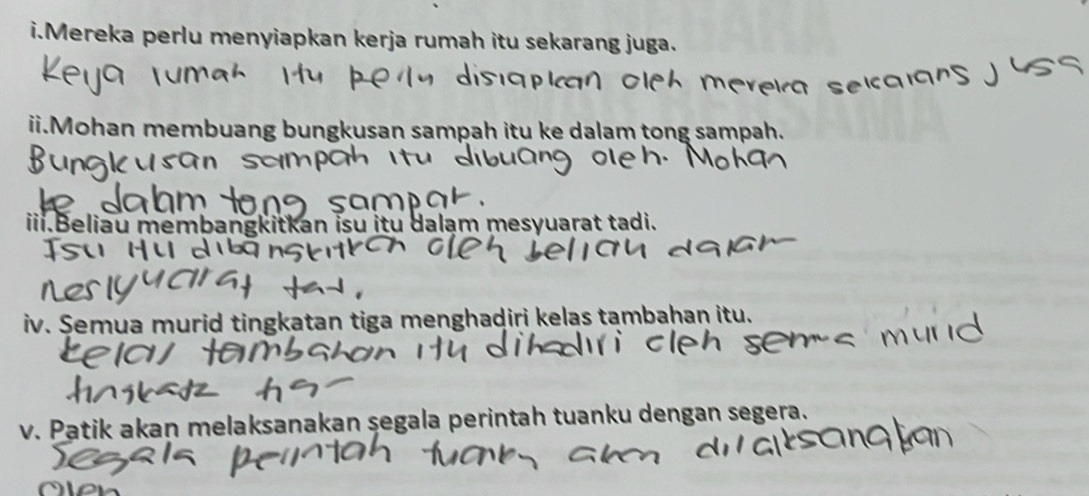 i.Mereka perlu menyiapkan kerja rumah itu sekarang juga.
Kerja rumah itu perlu disiapkan oleh mereka sekarang juga
ii.Mohan membuang bungkusan sampah itu ke dalam tong sampah.
Bungkusan sampah itu dibuang oleh. Mohan
ke dalam tong sampar.
iii.Beliau membangkitkan isu itu dalam mesyuarat tadi.
Isu itu dibangkitkan oleh beliau dalam
mesyuarat tadi.
iv. Semua murid tingkatan tiga menghadiri kelas tambahan itu.
kelas tambahan itu dihadiri oleh semua murid
tingkatan tiga
v. Patik akan melaksanakan segala perintah tuanku dengan segera.
Segala perintah tuanku akan dilaksanakan
oleh